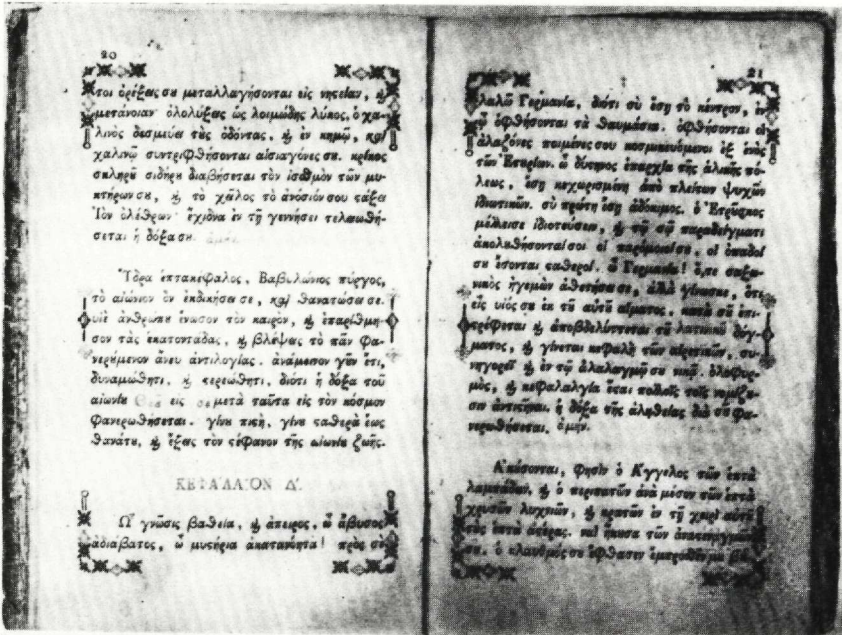 20
τοι ὀρέξεις σȣ μεταλλαγήσονται εἰς νηςείαν, ϗ
μετάνοιαν ὀλολύξεις ὡς λοιμώδης λύκος, ὁ χα-
λινὸς δεσμεύει τȣ̀ς ὀδόντας, ϗ ἐν κημῷ, καὶ
χαλινῷ συντριφθήσονται αἱ σιαγόνες σȣ. κρίκος
σκληρȣ̃ σιδήρȣ διαβήσεται τὸν ἰσθμὸν τῶν μυ-
κτήρων σȣ, ϗ τὸ χεῖλος τὸ ἀνόσιόν σου ςάξει
ἰὸν ὀλέθριον ἔχιδνα ἐν τῇ γεννήσει τελειωθή-
σεται ἡ δόξα σȣ ἀμήν.
Ὕδρα ἑπτακέφαλος, Βαβυλώνιος πύργος,
τὸ αἰώνιον ὂν ἐκδικήσει σε, καὶ θανατώσει σε.
υἱὲ ἀνθρώπȣ ἔνωσον τὸν καιρὸν, ϗ ἐπαρίθμη-
σον τὰς ἑκατοντάδας, ϗ βλέψεις τὸ πᾶν φα-
νερȣ́μενον ἄνευ ἀντιλογίας. ἀνάμεινον γȣ̃ν ἔτι,
δυναμώθητι, ϗ ςερεώθητι, διότι ἡ δόξα τοῦ
αἰωνίȣ Θεȣ̃ εἰς σὲ μετὰ ταῦτα εἰς τὸν κόσμον
φανερωθήσεται. γίνȣ πιςὴ, γίνȣ ςαθερὰ ἕως
θανάτȣ, ϗ ἕξεις τὸν ςέφανον τῆς αἰωνίȣ ζωῆς.
ΚΕΦΑΛΑΙΟΝ Δʹ.
Ὦ γνῶσις βαθεῖα, ϗ ἄπειρος, ὦ ἄβυσος
ἀδιάβατος, ὦ μυςήρια ἀκατανόητα! πρὸς σὲ
21
λαλῶ Γερμανία, διότι σὺ ἔσῃ τὸ κέντρον, ἐν
ᾧ ὀφθήσονται τὰ θαυμάσια. ὀφθήσονται οἱ
ἀλαζόνες ποιμένες σου κοσμικευόμενοι ἐξ ἑνὸς
τῶν Ἑταίρων. ὦ δύςηνος ἐπαρχία τῆς ἁλικῆς πό-
λεως, ἔσῃ κεχωρισμένη ἀπὸ πλείςων ψυχῶν
ἰδιωτικῶν. σὺ πρώτη ἔσῃ ἀδόκιμος. ὁ Ἑτρȣ̃σκος
μέλλει σε ἰδιοτεύσειν, ϗ τῇ σῷ παραδείγματι
ἀκολȣθήσονταί σοι οἱ παρόμοιοί σε, οἱ ὀπαδοί
σȣ ἔσονται ςαθεροί. ὦ Γερμανία! ὅ,τε σαξω-
νικὸς ἡγεμὼν ἀθετήσει σε, ἀλλὰ γίνωσκε, ὅτι
εἷς υἱός σȣ ἐκ τȣ̃ αὐτȣ̃ αἵματος, κατὰ σȣ̃ ἐπι-
ςρέφεται ϗ ἀποβδελύττεται σȣ̃ λατινικȣ̃ δόγ-
ματος, ϗ γίνεται κεφαλὴ τῶν αἱρετικῶν, συ-
νηγορεῖ ϗ ἐν τῷ ἀλαλαγμῷ σȣ νικᾷ. ὀλοφυρ-
μὸς, ϗ κεφαλαλγία ἔςαι πολλοῖς τοῖς νομίζȣ-
σιν ἀντικεῖσθαι, ἡ δόξα τῆς ἀληθείας διὰ σȣ̃ φα-
νερωθήσεται. ἀμήν.
Ἀκȣ́σονται, φησὶν ὁ Ἄγγελος τῶν ἑπτὰ
λαμπάδων, ϗ ὁ περιπατῶν ἀνὰ μέσον τῶν ἑπτὰ
χρυσῶν λυχνιῶν, ϗ κρατῶν ἐν τῇ χειρὶ αὐτȣ̃
τȣ̀ς ἑπτὰ ἀςέρας. ναὶ ἤκȣσα τῶν ἀναςεναγμῶν
σȣ. ὁ κλαυθμός σȣ ἔφθασεν ἔμπροσθέν μȣ